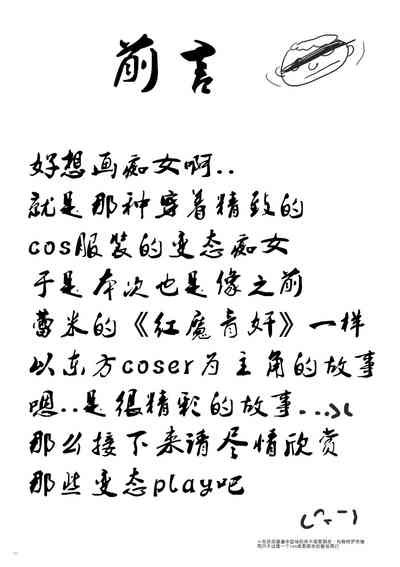 前言
好想画痴女啊..
就是那种穿着精致的
cos服装的变态痴女
于是本次也是像之前
蕾米的《红魔音奸》一样
以东方coser为主角的故事
嗯..是很精彩的故事...
那么接下来请尽情欣赏
那些变态play吧